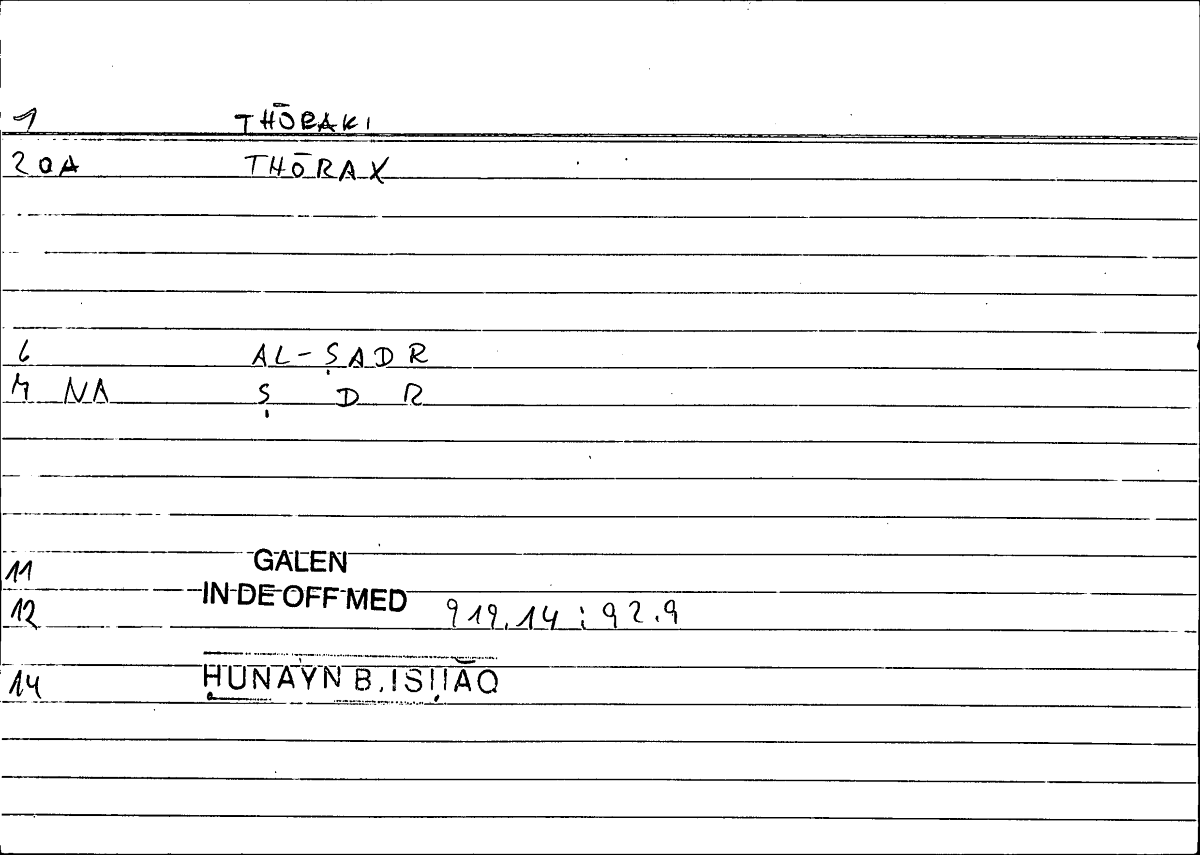 1 THŌRAKI
20A THŌRAX
6 AL-ṢADR
7 NA Ṣ D R
11 GALEN
12 IN DE OFF MED 919.14 ; 92.9
14 ḤUNAYN B. ISḤĀQ